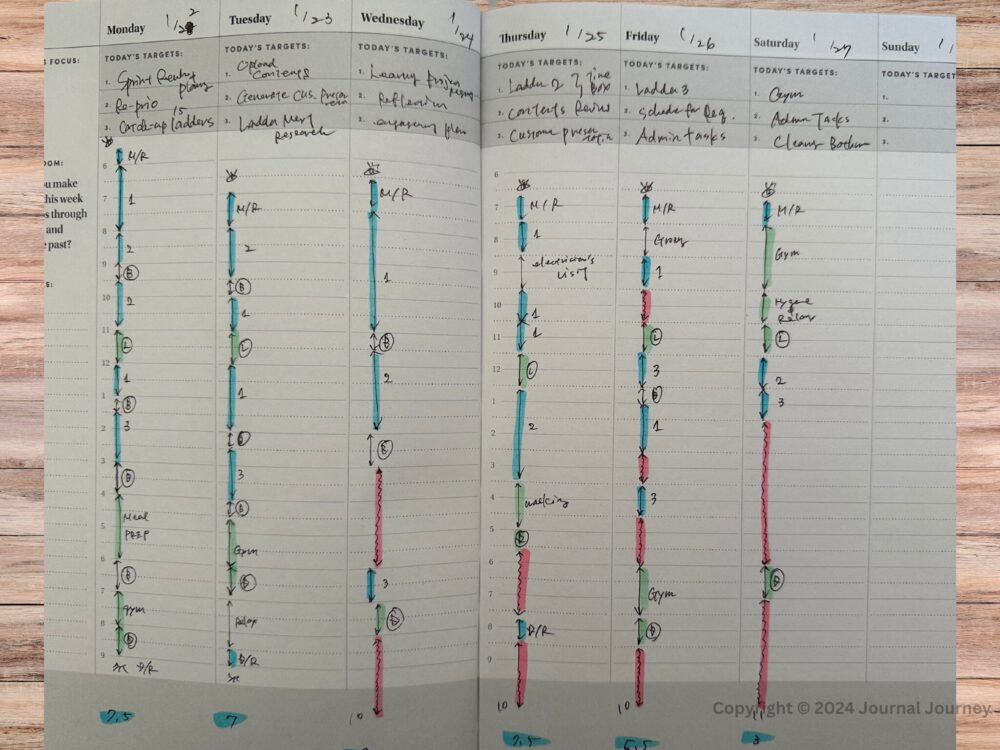 S FOCUS:
OOM:
u make
his week
s through
and
past?
S:
Monday 1/22
TODAY'S TARGETS:
1. Sprint
2. Re-prio
3. Catch-up ladders
M/R
6
1
7
8
2
9
B
10
2
11
L
12
1
1
B
3
2
3
4
Meal
PREP
5
6
7
gym
8
9
D/R
7,5
Tuesday 1/23
TODAY'S TARGETS:
1. Upload
Contents
2. Generate Cus.
3. Ladder Next
Research
M/R
2
B
1
L
1
B
3
B
Gym
Relax
D/R
7
Wednesday 1/24
TODAY'S TARGETS:
1.
2. Reflection
3. plan
M/R
1
B
2
B
3
D
10
Thursday 1/25
TODAY'S TARGETS:
1. Ladder 2 time
box
2. Contents Review
3. Custom
6
M/R
7
1
8
electrician's
visit
9
10
1
1
11
L
12
1
2
2
3
4
walking
5
D
6
7
8
D/R
9
10
7,5
Friday 1/26
TODAY'S TARGETS:
1. Ladder 3
2. for Req.
3. Admin tasks
M/R
1
L
3
B
1
3
Gym
D
10
5,5
Saturday 1/27
TODAY'S TARGETS:
1. Gym
2. Admin Tasks
3. Cleans
M/R
Gym
Relax
L
2
3
D
11
3
Sunday 1/
TODAY'S TARGET
1.
2.
3.
Copyright © 2024 Journal Journey.